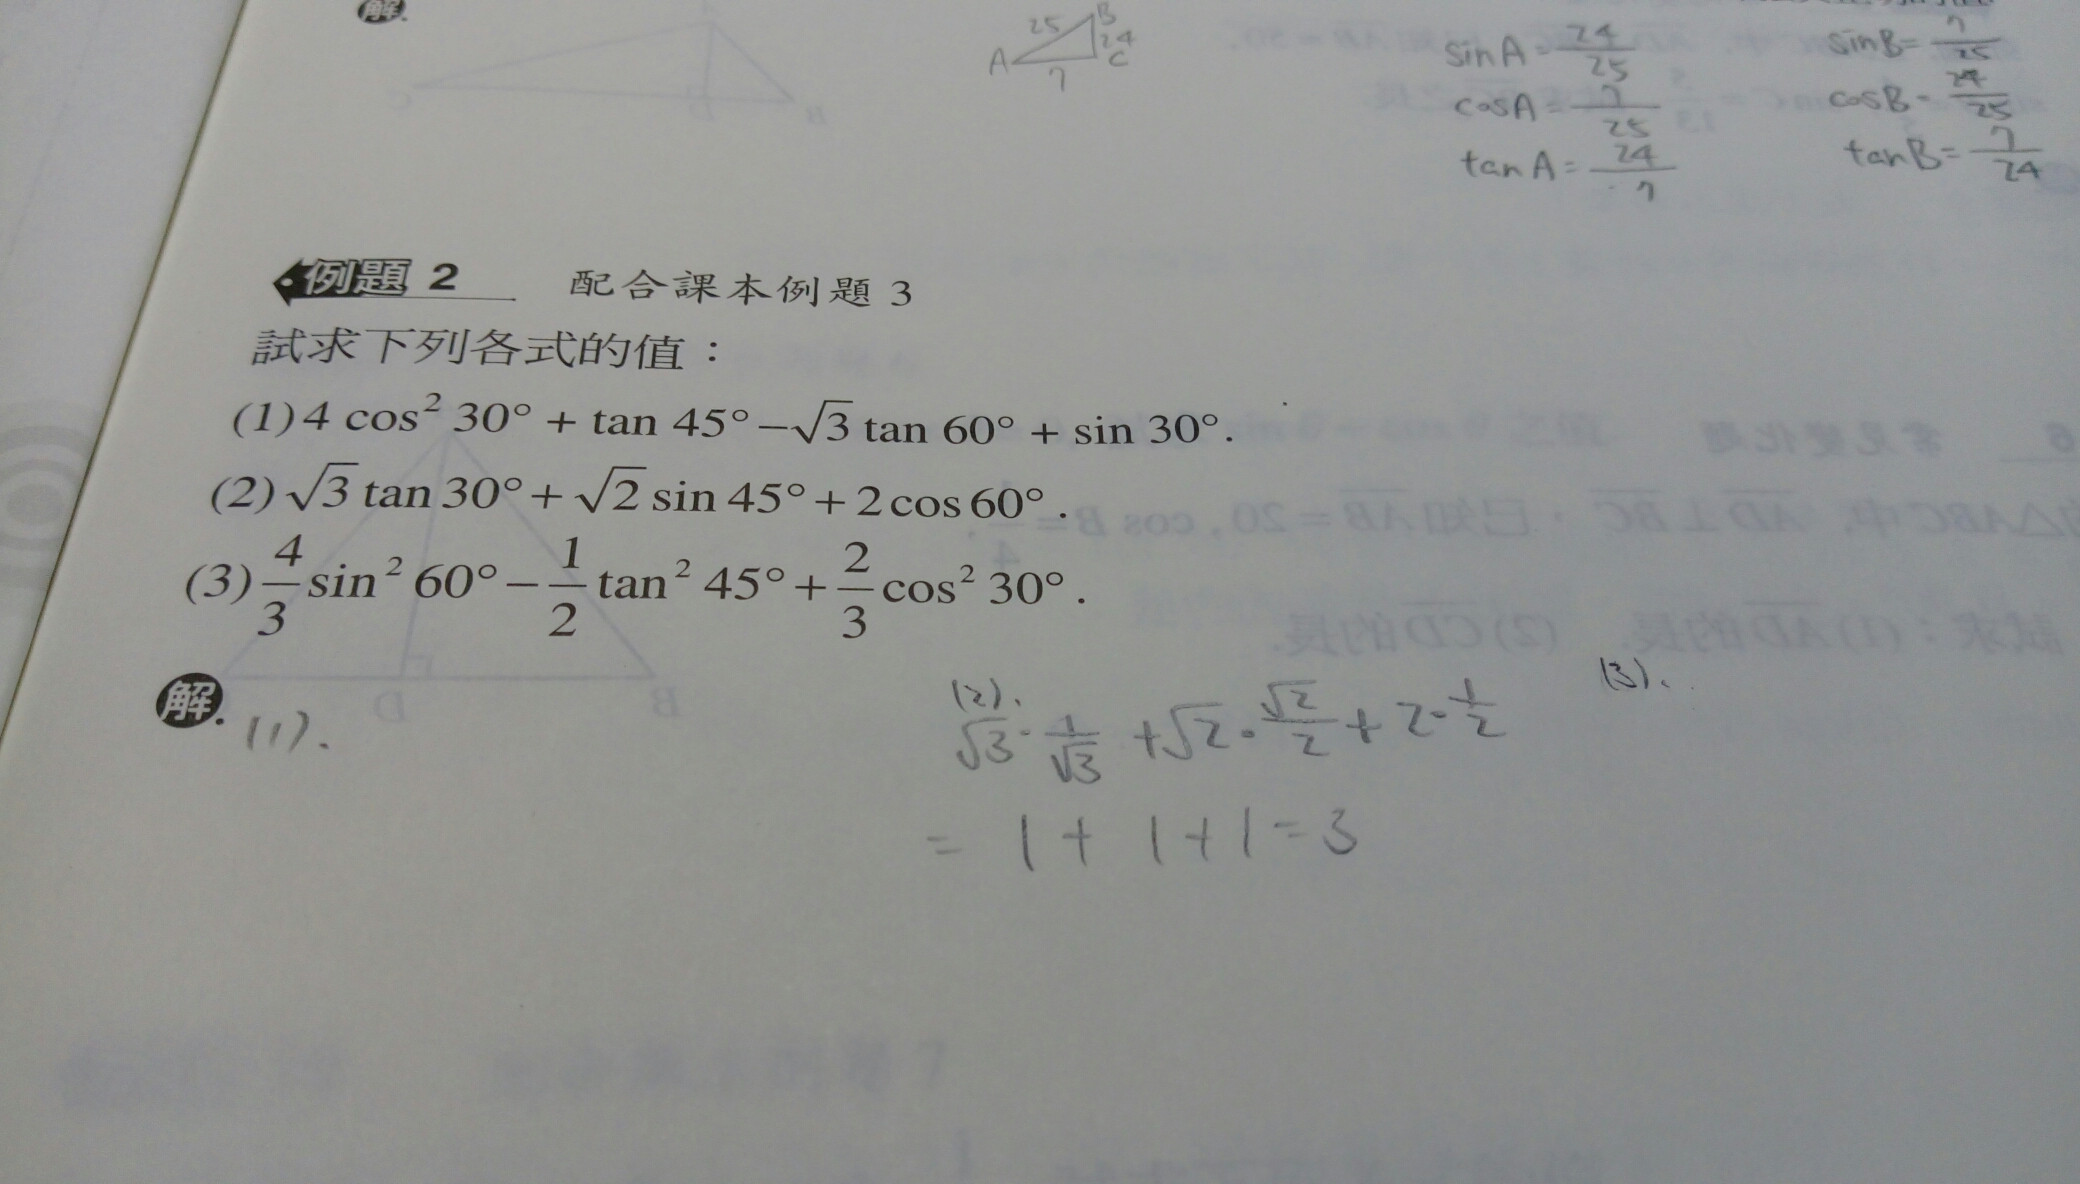 解.
25 B
24
A 7 C
sinA = 24/25 sinB = 7/25
cosA = 7/25 cosB = 24/25
tanA = 24/7 tanB = 7/24
例題 2 配合課本例題 3
試求下列各式的值：
(1) 4 cos² 30° + tan 45° − √3 tan 60° + sin 30°.
(2) √3 tan 30° + √2 sin 45° + 2 cos 60°.
(3) 4/3 sin² 60° − 1/2 tan² 45° + 2/3 cos² 30°.
解. (1). (2). (3).
√3 · 1/√3 + √2 · √2/2 + 2 · 1/2
= 1 + 1 + 1 = 3